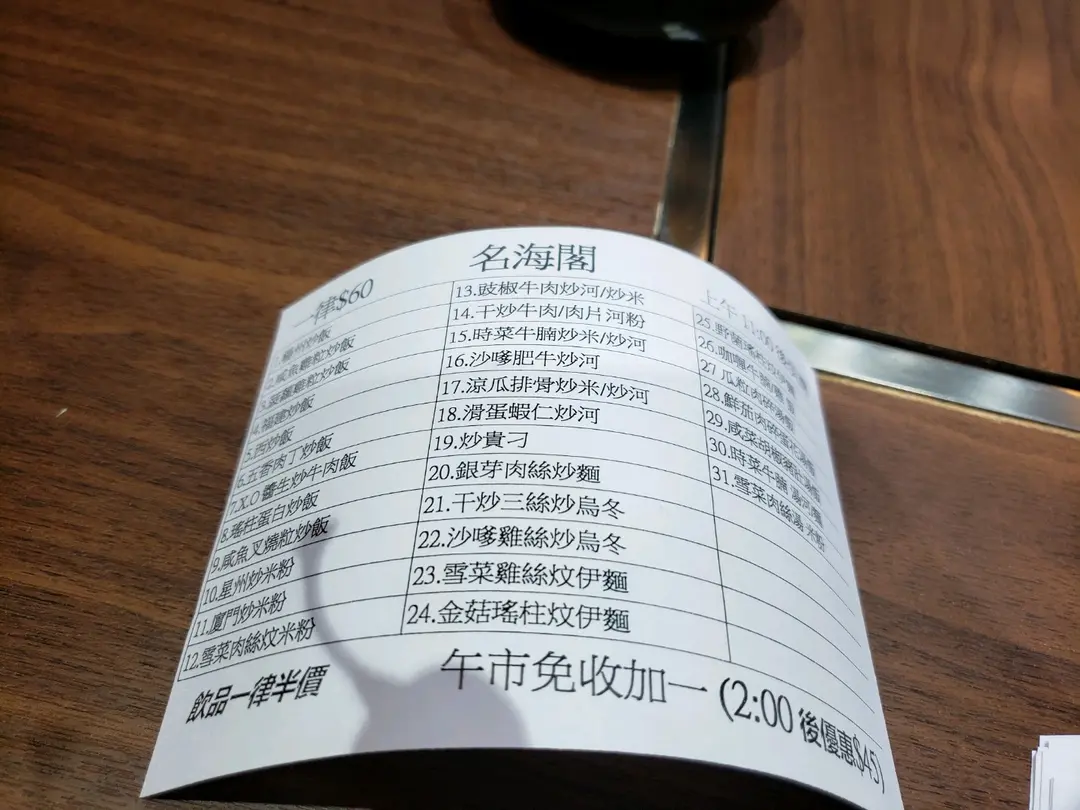 名海閣
一律$60
上午 11:00
1.楊州炒飯
2.咸魚雞粒炒飯
3.菠蘿雞粒炒飯
4.福建炒飯
5.西炒飯
6.五香肉丁炒飯
7.X.O 醬生炒牛肉飯
8.瑤柱蛋白炒飯
9.咸魚叉燒粒炒飯
10.星州炒米粉
11.廈門炒米粉
12.雪菜肉絲炆米粉
13.豉椒牛肉炒河/炒米
14.干炒牛肉/肉片河粉
15.時菜牛腩炒米/炒河
16.沙嗲肥牛炒河
17.涼瓜排骨炒米/炒河
18.滑蛋蝦仁炒河
19.炒貴刁
20.銀芽肉絲炒麵
21.干炒三絲炒烏冬
22.沙嗲雞絲炒烏冬
23.雪菜雞絲炆伊麵
24.金菇瑤柱炆伊麵
25.野菌瑤柱
26.咖喱牛腩
27.瓜粒肉碎湯飯
28.鮮茄肉碎蛋花湯飯
29.咸菜胡椒豬肚湯飯
30.時菜牛腩 湯河
31.雪菜肉絲湯 米粉
飲品一律半價
午市免收加一 (2:00 後優惠$45)